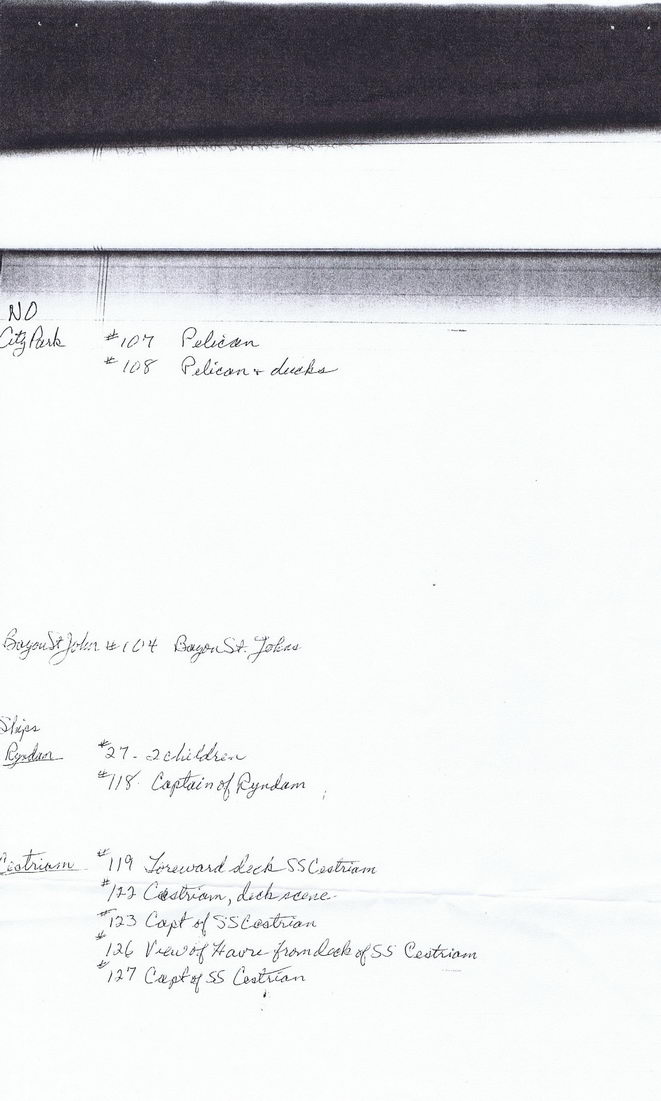 NO
City Park #107 Pelican
#108 Pelican + ducks
Bayou St John #104 Bayou St. Johns
Ships
Ryndam #27 - 2 children
#118 Captain of Ryndam
Cestriam #119 Foreward deck SS Cestriam
#122 Cestriam, deck scene
#123 Capt of SS Cestrian
#126 View of Havre from deck of SS Cestriam
#127 Capt of SS Cestrian